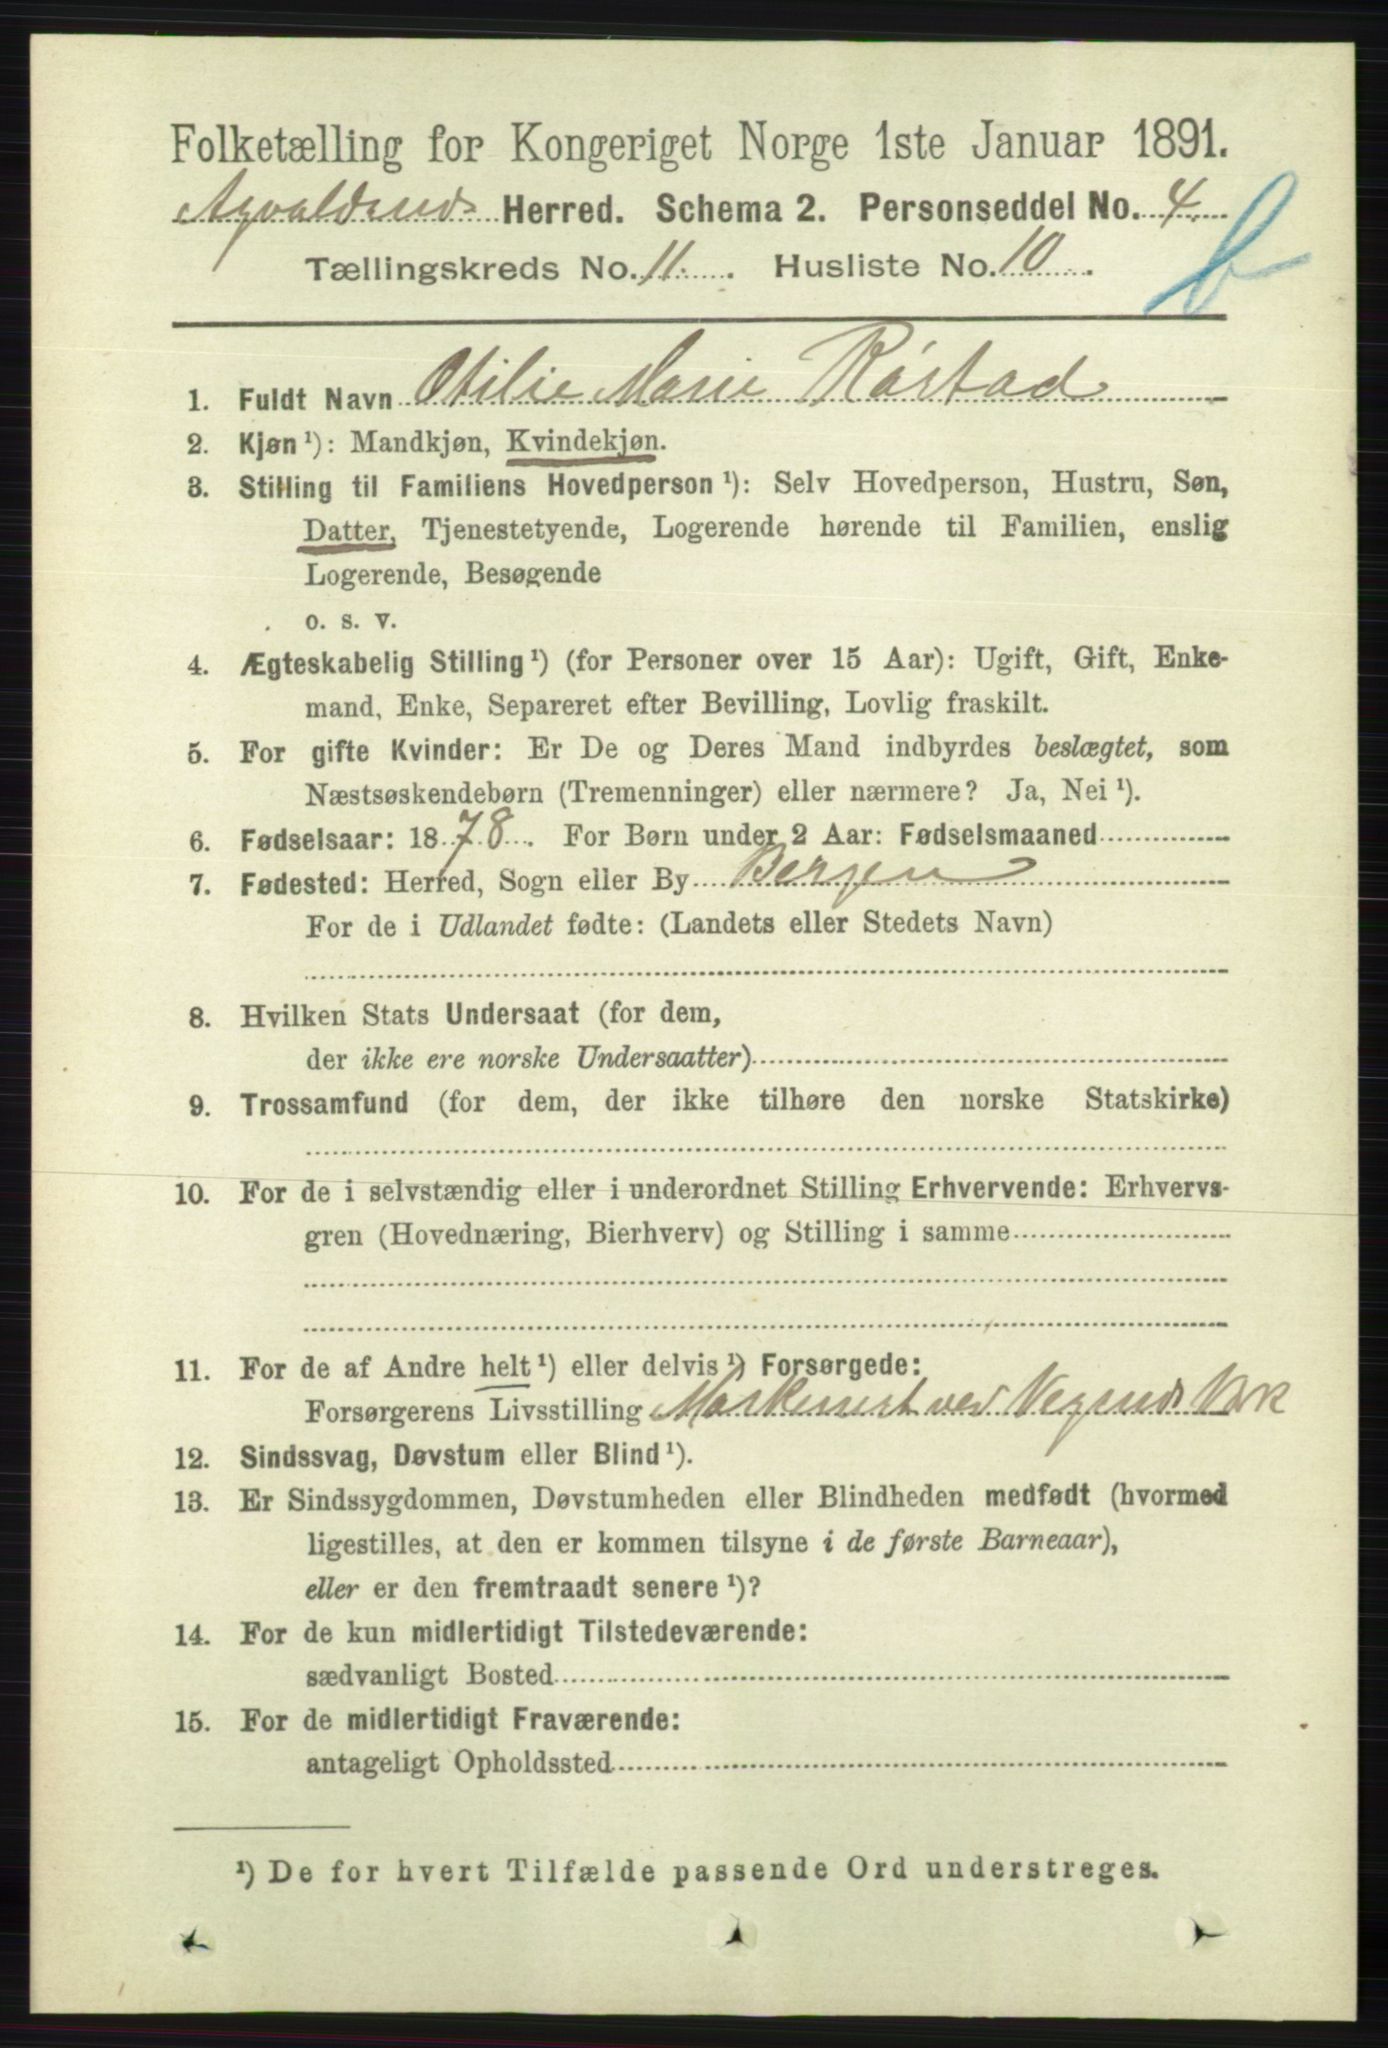 Folketælling for Kongeriget Norge 1ste Januar 1891.
Avaldsnes Herred. Schema 2. Personseddel No. 4.
Tællingskreds No. 11. Husliste No. 10.
b
1. Fuldt Navn Otilie Marie Røstad
2. Kjøn ¹): Mandkjøn, Kvindekjøn.
3. Stilling til Familiens Hovedperson ¹): Selv Hovedperson, Hustru, Søn,
Datter, Tjenestetyende, Logerende hørende til Familien, enslig
Logerende, Besøgende
o. s. v.
4. Ægteskabelig Stilling ¹) (for Personer over 15 Aar): Ugift, Gift, Enke-
mand, Enke, Separeret efter Bevilling, Lovlig fraskilt.
5. For gifte Kvinder: Er De og Deres Mand indbyrdes beslægtet, som
Næstsøskendebørn (Tremenninger) eller nærmere? Ja, Nei ¹).
6. Fødselsaar: 1878. For Børn under 2 Aar: Fødselsmaaned
7. Fødested: Herred, Sogn eller By Bergen
For de i Udlandet fødte: (Landets eller Stedets Navn)
8. Hvilken Stats Undersaat (for dem,
der ikke ere norske Undersaatter)
9. Trossamfund (for dem, der ikke tilhøre den norske Statskirke)
10. For de i selvstændig eller i underordnet Stilling Erhvervende: Erhvervs-
gren (Hovednæring, Bierhverv) og Stilling i samme
11. For de af Andre helt ¹) eller delvis ¹) Forsørgede:
Forsørgerens Livsstilling Maskinist ved
12. Sindssvag, Døvstum eller Blind ¹).
13. Er Sindssygdommen, Døvstumheden eller Blindheden medfødt (hvormed
ligestilles, at den er kommen tilsyne i de første Barneaar),
eller er den fremtraadt senere ¹)?
14. For de kun midlertidigt Tilstedeværende:
sædvanligt Bosted
15. For de midlertidigt Fraværende:
antageligt Opholdssted
¹) De for hvert Tilfælde passende Ord understreges.